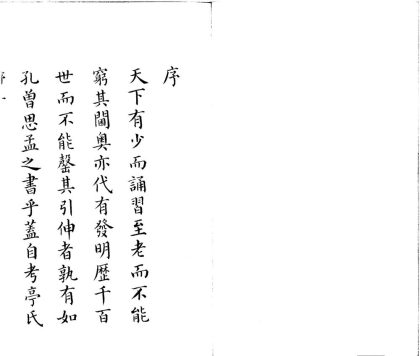 序
天下有少而誦習至老而不能
窮其閫奧亦代有發明歷千百
世而不能罄其引伸者孰有如
孔曾思孟之書乎蓋自考亭氏
序一